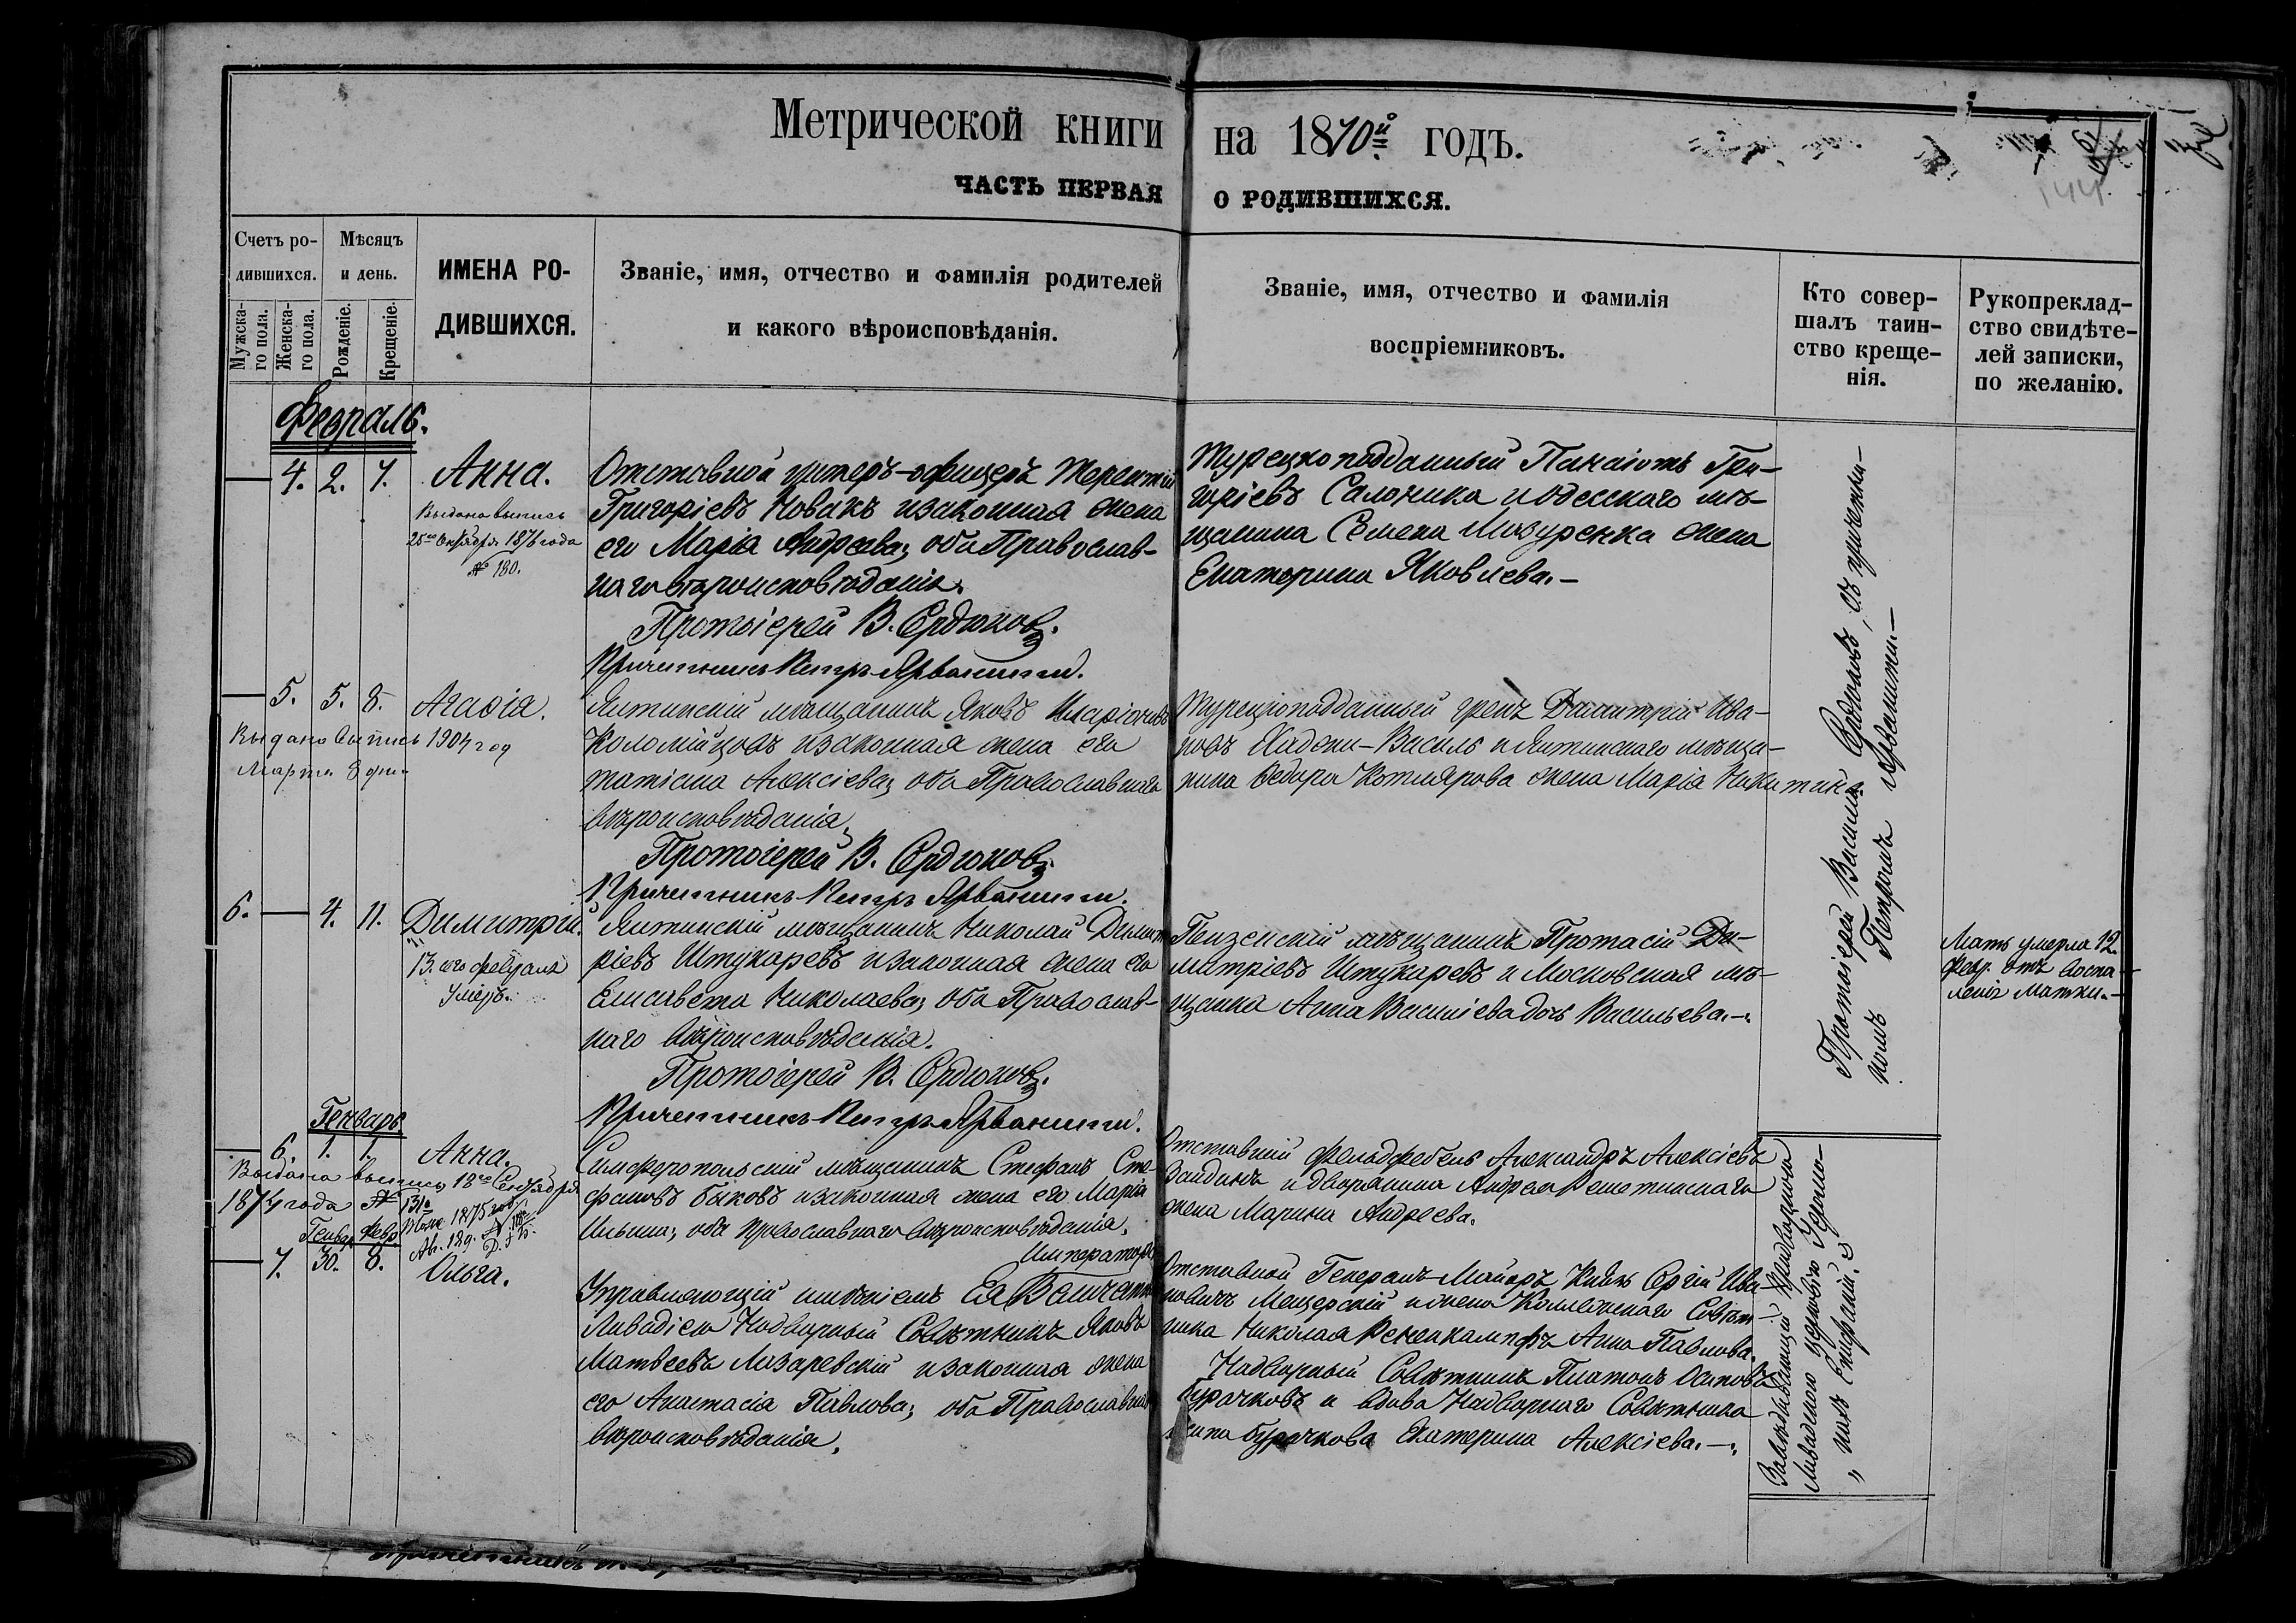 Метрической книги на 1870й годъ.
ЧАСТЬ ПЕРВАЯ О РОДИВШИХСЯ.
Счетъ ро-
дившихся.
Мужска-
го пола.
Женска-
го пола.
Мѣсяцъ
и день.
Рожденіе.
Крещеніе.
ИМЕНА РО-
ДИВШИХСЯ.
Званіе, имя, отчество и фамилія родителей
и какого вѣроисповѣданія.
Званіе, имя, отчество и фамилія
воспріемниковъ.
Кто совер-
шалъ таин-
ство креще-
нія.
Рукопреклад-
ство свидѣте-
лей записки,
по желанію.
Февраль.
— 4. 2. 7. Анна.
Выдана выпись
25го Октября 1876 года
№ 180.
Отставной унтеръ-офицеръ Терентій
Григорієвъ Новакъ и законная жена
его Марія Андреева, оба Православ-
наго вѣроисповѣданія.
Протоіерей В. Сердюковъ.
Причетникъ Петръ Арванити.
Турецкоподданный Панаіотъ Гри-
горіевъ Салоника и Одесскаго мѣ-
щанина Семена Мазуренка жена
Екатерина Яковлева.—
— 5. 5. 8. Агафія.
Выдана выпись 1904 год
Марта 8 дня
Ялтинскій мѣщанинъ Яковъ Иларіоновъ
Коломійцовъ и законная жена его
Татіана Алексіева, оба Православнаго
вѣроисповѣданія,
Протоіерей В. Сердюковъ.
Причетникъ Петръ Арванити.
Турецкоподданный грекъ Димитрій Ива-
новъ Хаджи-Василь и Ялтинскаго мѣща-
нина Ѳедора Котлярова жена Марія Никитина.
6. — 4. 11. Димитрій.
13. сего февраля
умеръ.
Ялтинскій мѣщанинъ Николай Димит
ріевъ Штукаревъ и законная жена его
Елисавета Николаева, оба Православ-
наго вѣроисповѣданія.
Протоіерей В. Сердюковъ.
Причетникъ Петръ Арванити.
Пензенскій мѣщанинъ Протасій Ди-
митріевъ Штукаревъ и Московская мѣ-
щанка Анна Василіева дочь Васильева.—
Протоіерей Василій Сердюковъ, съ причетни-
комъ Петромъ Арванити—
Мать умерла 12
февр. отъ воспа-
ленія матки.—
Генварь
— 6. 1. 1. Анна.
Выдана выпись 18го Сентября
1874 года №
Симферопольскій мѣщанинъ Стефанъ Сте-
фановъ Быковъ и законная жена его Марія
Ильина, оба православнаго вѣроисповѣданія.
Отставной фельдфебель Александръ Алексіевъ
и дворянина Андрея Решетинскаго
жена Марина Андреева.
Генвар Февр
— 7. 30. 8. Ольга.
Императорс
Управляющій имѣніемъ Ея Величества
Ливадіею Надворный Совѣтникъ Яковъ
Матвѣевъ Лазаревскій и законная жена
его Анастасія Павлова, оба Православнаго
вѣроисповѣданія.
Отставной Генералъ-Майоръ Князь Сергій Ива-
новичъ Мещерскій и жена Коллежскаго Совѣт-
ника Николая Рененкампфъ Анна Павлова.
Надворный Совѣтникъ Платонъ Осиповъ
Бурачковъ и вдова Надворнаго Совѣтника
Осипа Бурачкова Екатерина Алексіева.—
Завѣдывающій придворною
Ливадскою церковію Іеромо-
нахъ Епифаній.